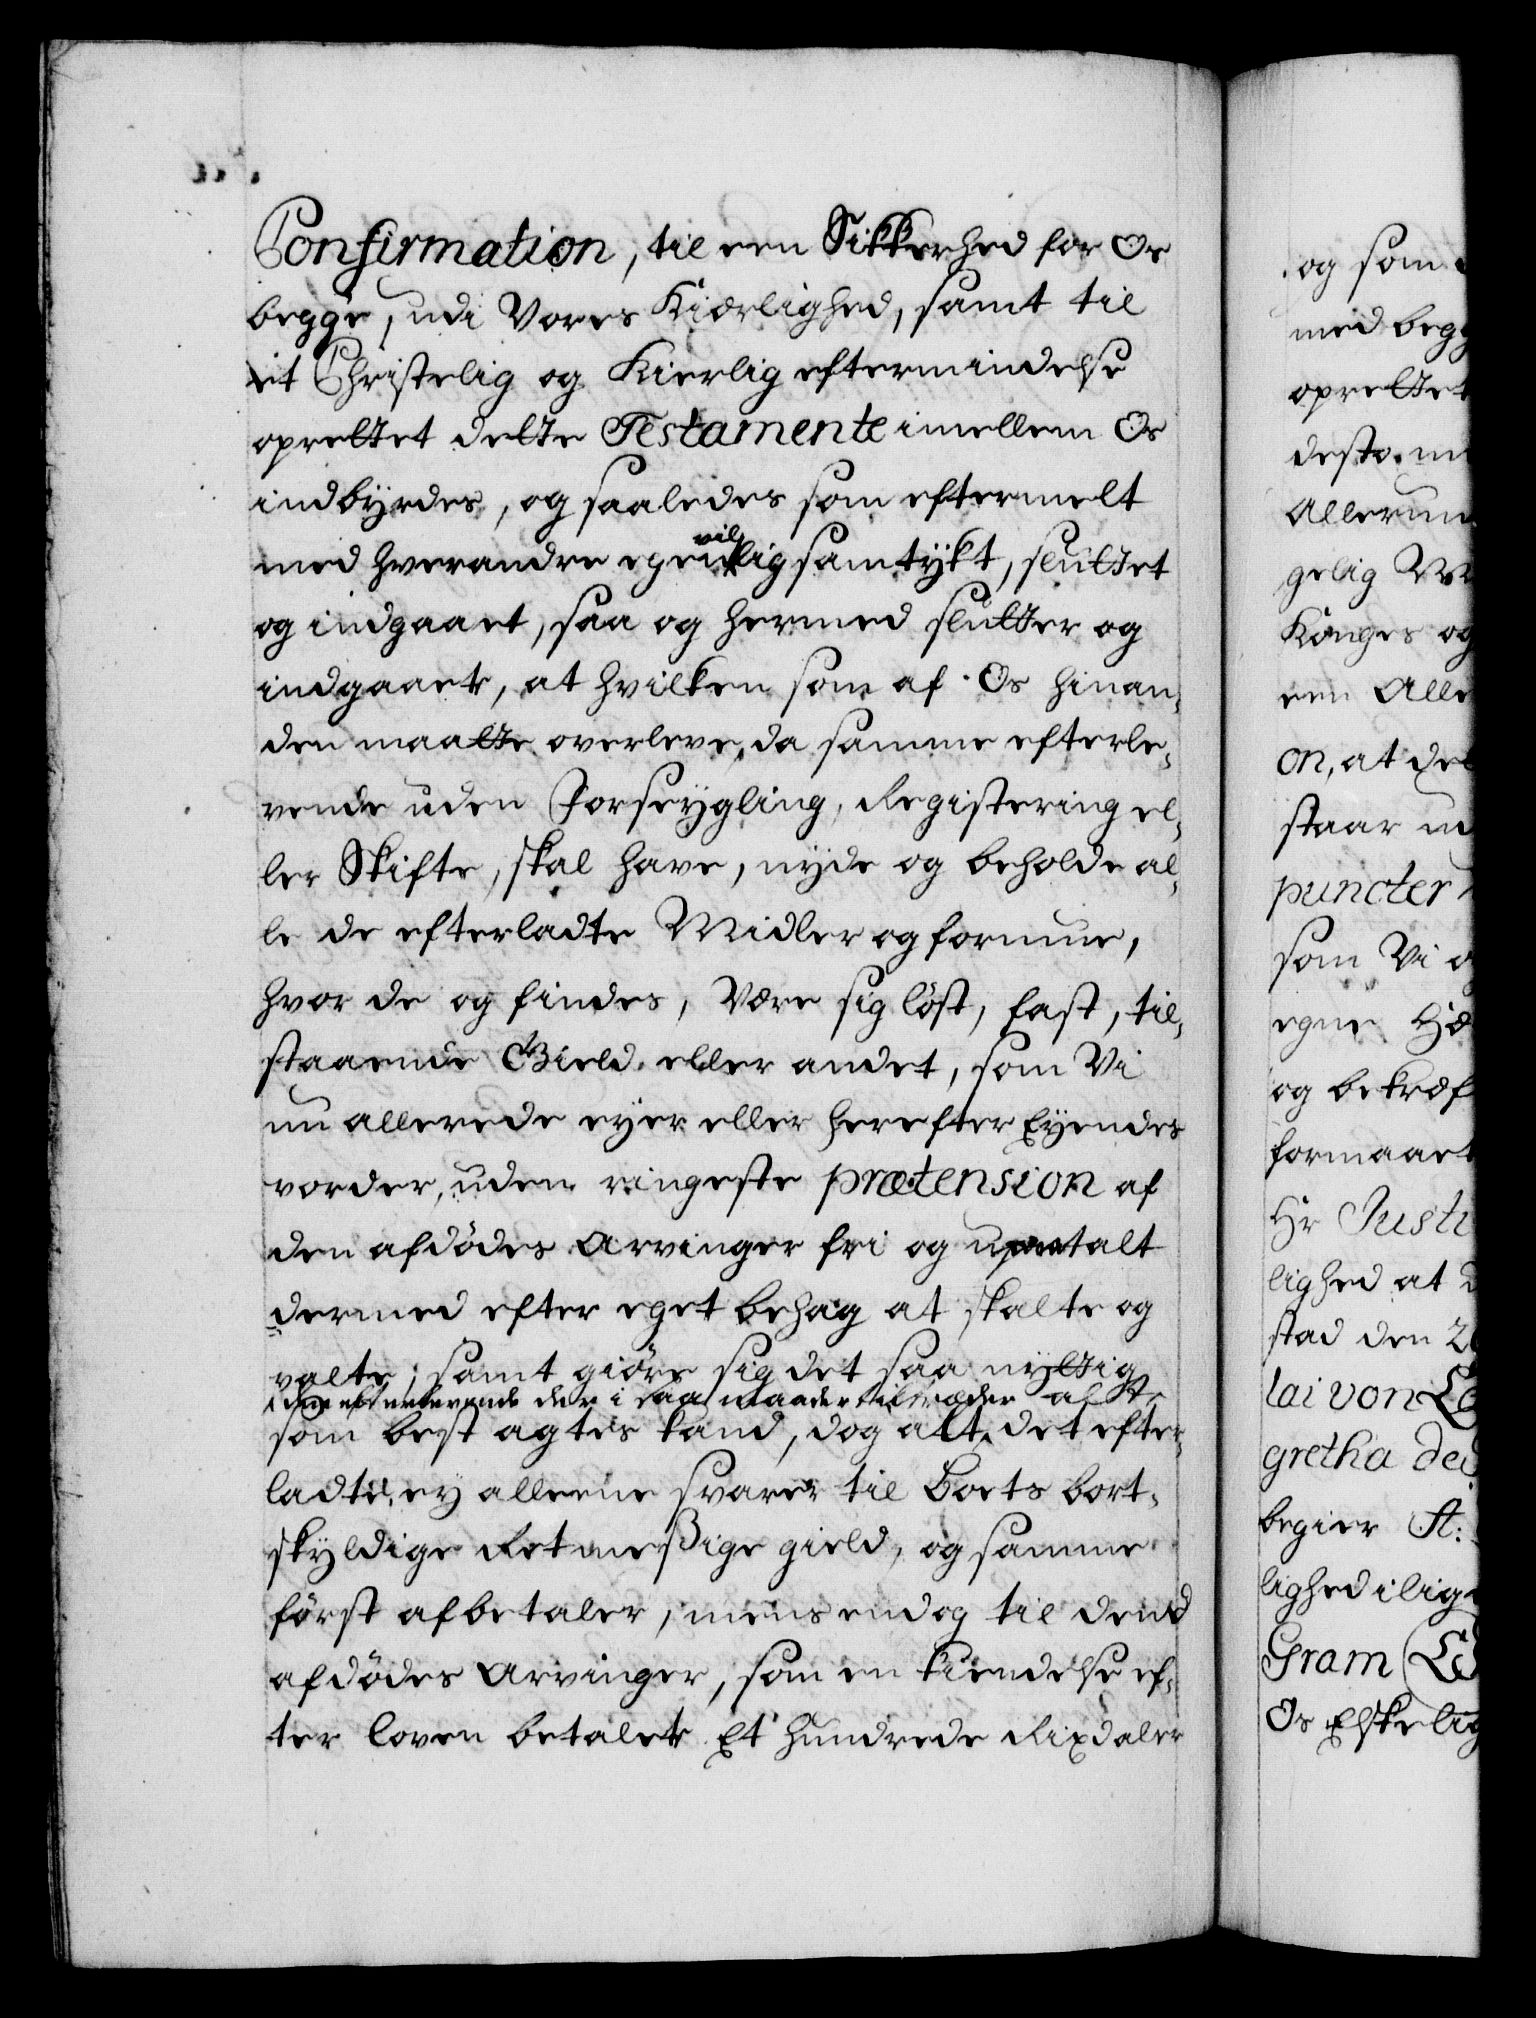 Confirmation, til een Sikkerhed for Os
begge, udi Vores Kiærlighed, samt til
et Christelig og Kierlig eftermindelse
oprettet dette Testamente imellem Os
indbÿrdes, og saaledes som eftermelt
med hverandre egenvillig samtÿkt, sluttet
og indgaaet, saa og hermed slutter og
indgaaer, at hvilken som af Os hinan-
den maatte overleve, da samme efterle-
vende uden Forseÿgling, Registering el-
ler Skifte, skal have, nÿde og beholde al-
le de efterladte Midler og formue,
hvor de og findes, være sig löst, fast, til-
staaende Gield eller andet, som Vi
nu allerede eÿer eller herefter Eÿendes
vorder, uden ringeste prætension af
den afdödes Arvinger fri og upaatalt
dermed efter eget behag at skalte og
valte, samt giöre sig det saa nÿttig
den efterlevende der i saa maader tiltræder alt
som best agtes kand, dog at det efter-
ladte, eÿ alleene svarer til Boets bort-
skÿldige Retmeßige gield, og samme
först afbetaler, mens endog til dend
afdödes Arvinger, som en kiendelse ef-
ter loven betaler Et hundrede Rixdaler
og som
med begg
oprettet
desto m
Allerun
gelig
Konges og
een Alle
on, at de
staar
puncter
som Vi
egne Hæ
og bekræf
formaaet
Hr Justi
lighed at
stad den 2
lai von
gretha de
begier St:
lighed i lig
Gram
Os Elskelig